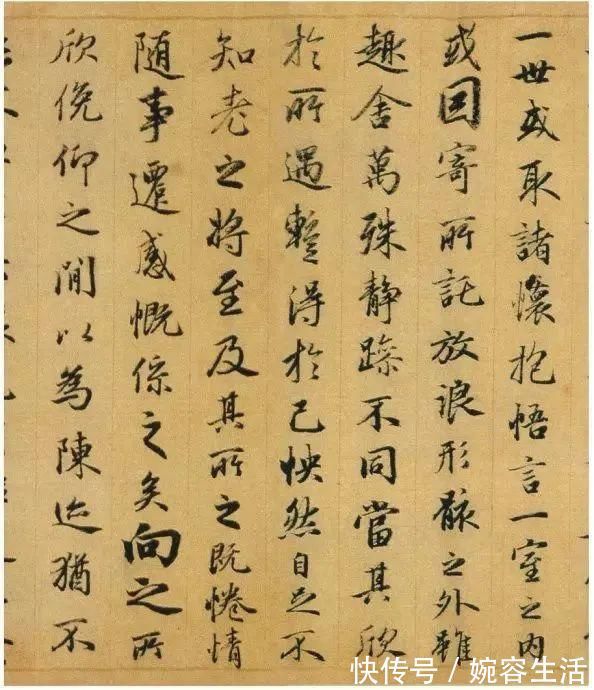 一世或取諸懷抱悟言一室之內
或因寄所託放浪形骸之外雖
趣舍萬殊靜躁不同當其欣
於所遇暫得於己怏然自足不
知老之將至及其所之既惓情
隨事遷感慨係之矣向之所
欣俛仰之閒以為陳迹猶不
快传号 / 婉容生活